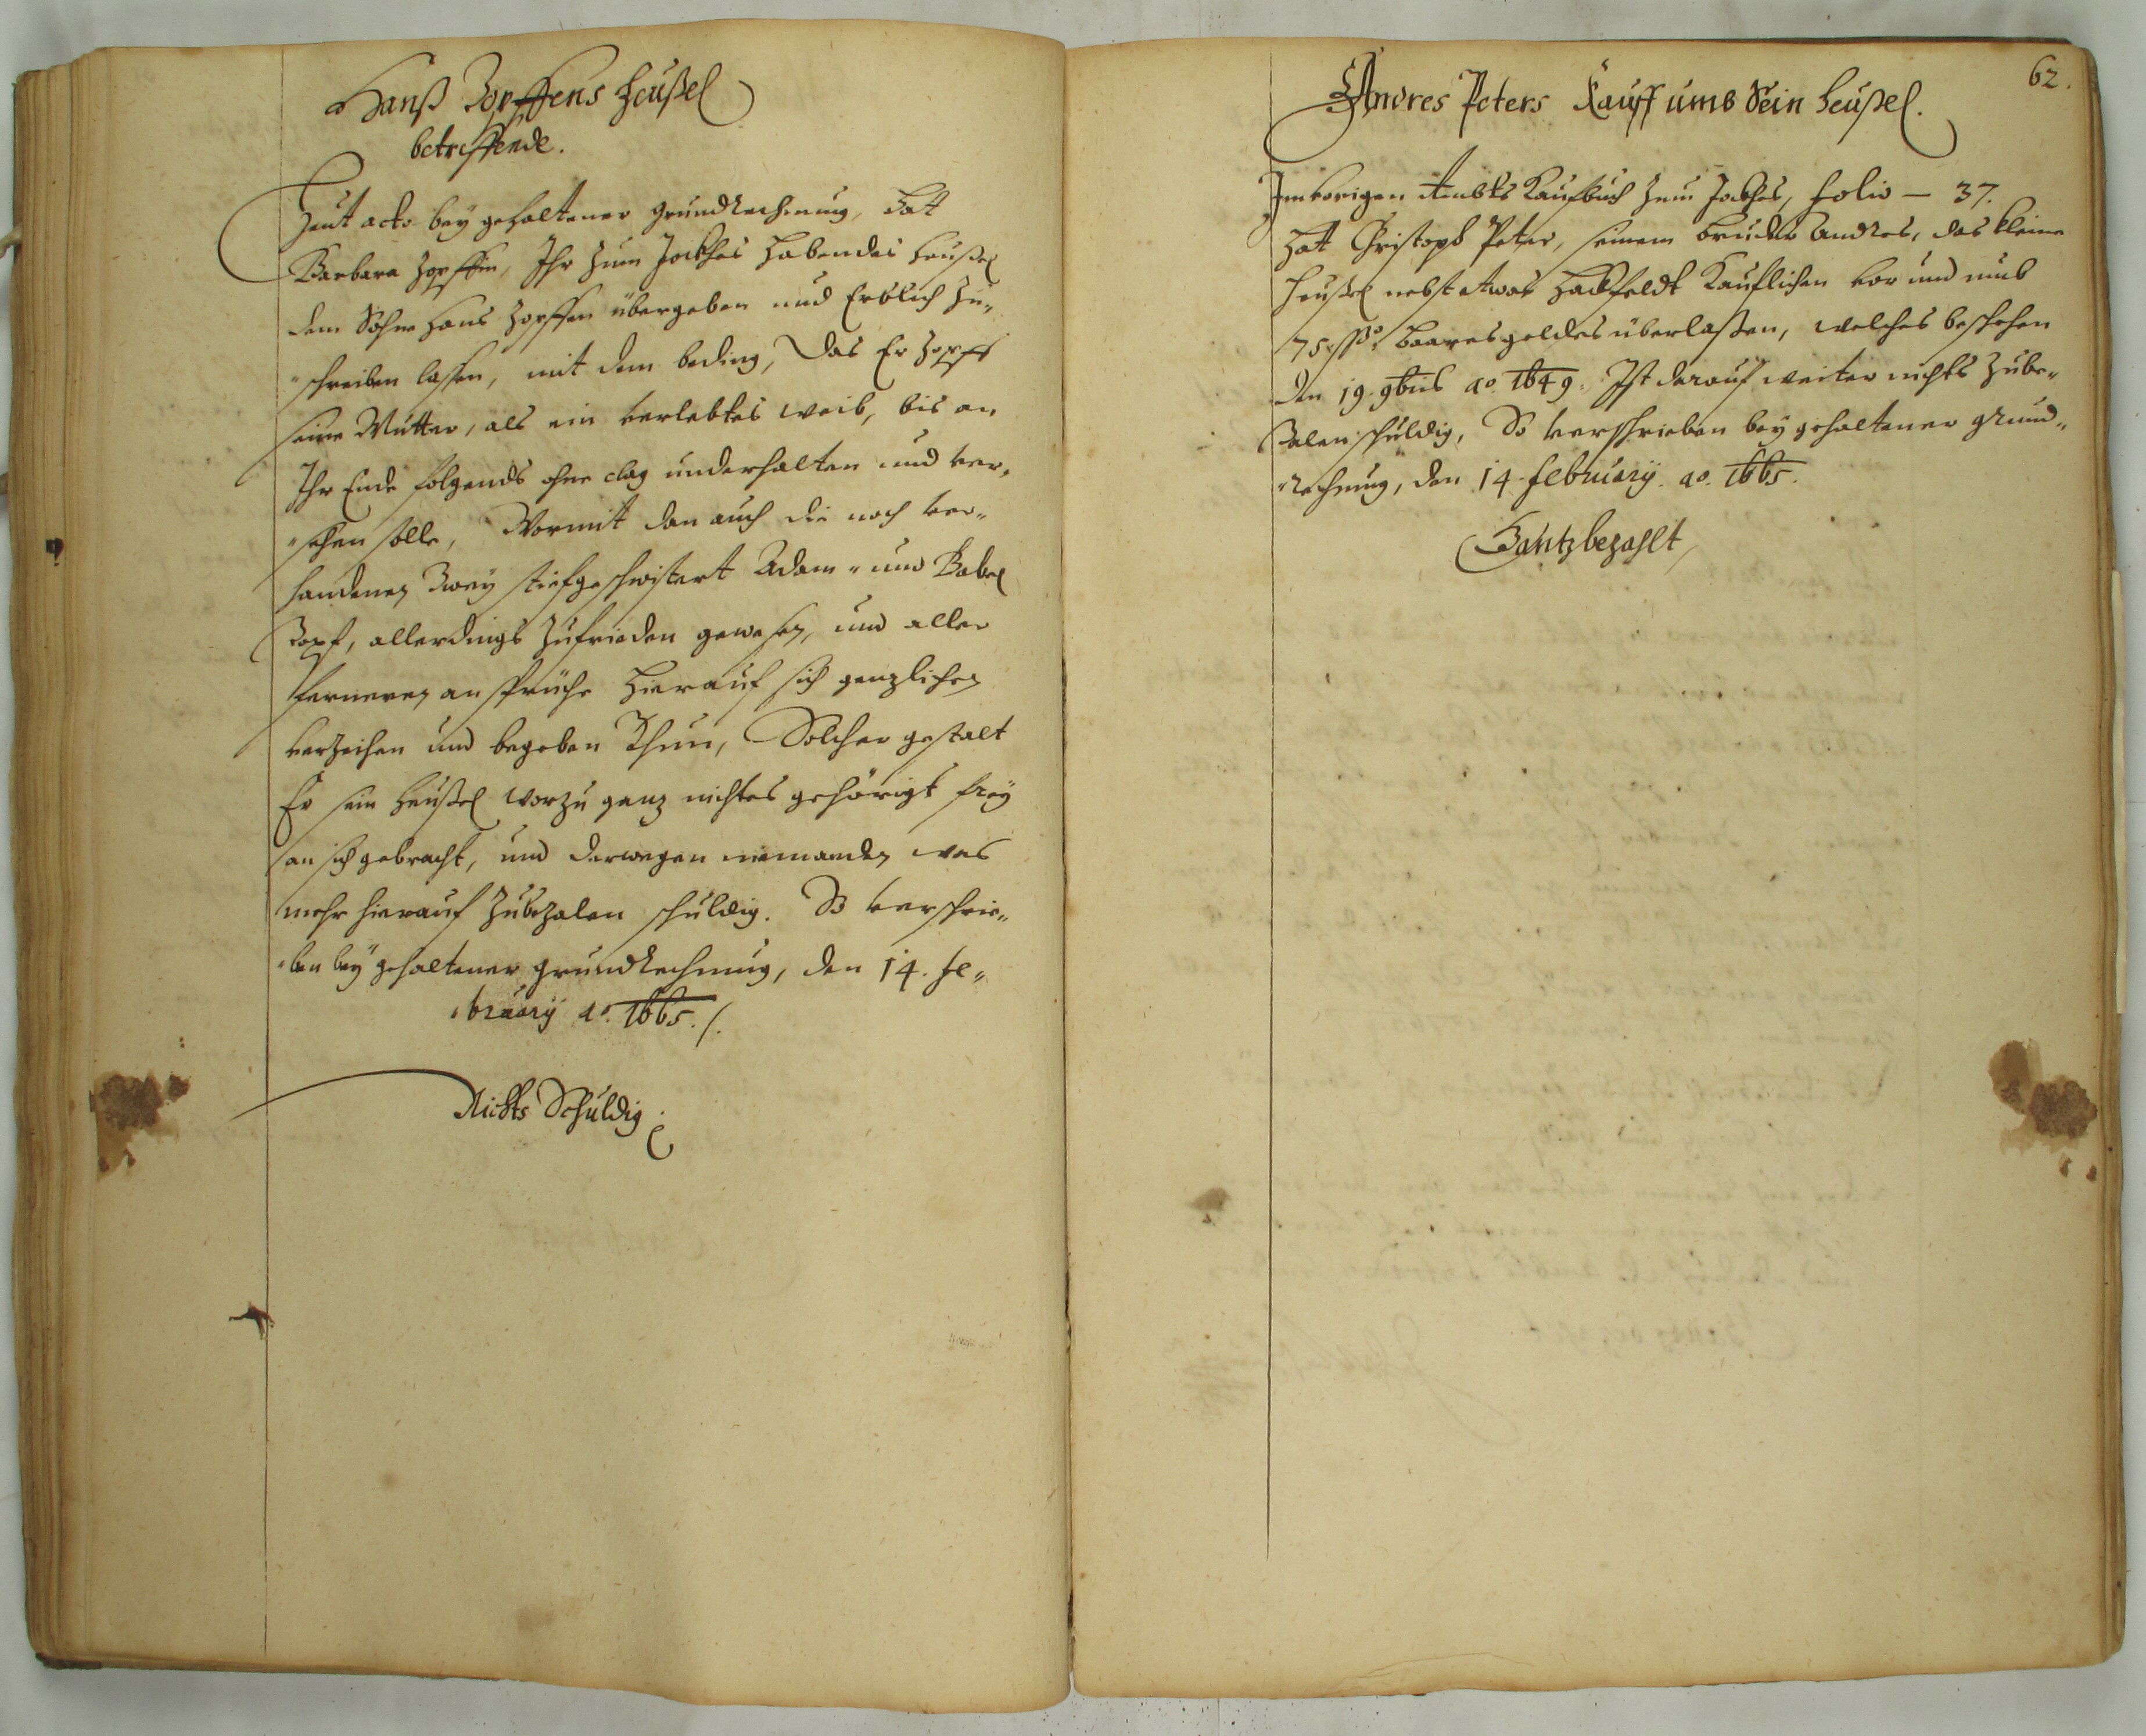 Hanß Zopffens heußel
betreffende.
Heut acto bey gehaltener grundRechnung, Hatt
Barbara Zopffin, Ihr zum Jockhes habendes heußel
dem Sohne Hans Zopffen übergeben und Erblich zu„
„schreiben lassen, mit dem beding, das Er Zopff
seine Mutter, als ein verlebtes weib, bis an
Ihr Ende folgends ohne clag underhalten und ver„
„sehen solle, Wormit dan auch die noch ver„
handenen Zwey stiefgeschwistert Adam „ und Babel
Zopf, allerdings zufrieden gewesen, und aller
ferneren ansprüche hierauf sich genzlichen
verzeihen und begeben Thun, Solcher gestalt
Er sein heußel worzu ganz nichtes gehörigt frey
an sich gebracht, und derwegen niemanden was
mehr hierauf zubezalen schuldig. So verschrie„
„ben bey gehaltener grundRechnung, den 14. fe„
„bruary ao. 1665. /.
Nichts Schuldig
62.
Andres Peters Kauff umb Sein heußel.
Im vorigen Ambts Kaufbuch zum Jockhes, folio — 37.
Hatt Christoph Peter, seinem bruder Andres, das kleine
heußel nebst etwas Hackfeldt Kauflichen vor und umb
75 ßo. baares geldes überlaßen, welches beschehen
den 19. 9bris ao. 1649. Ist darauf weiter nichts zube„
zalen schuldig, So verschrieben bey gehaltener grund„
„Rechnung, den 14. february. ao. 1665.
Gantz bezahlt